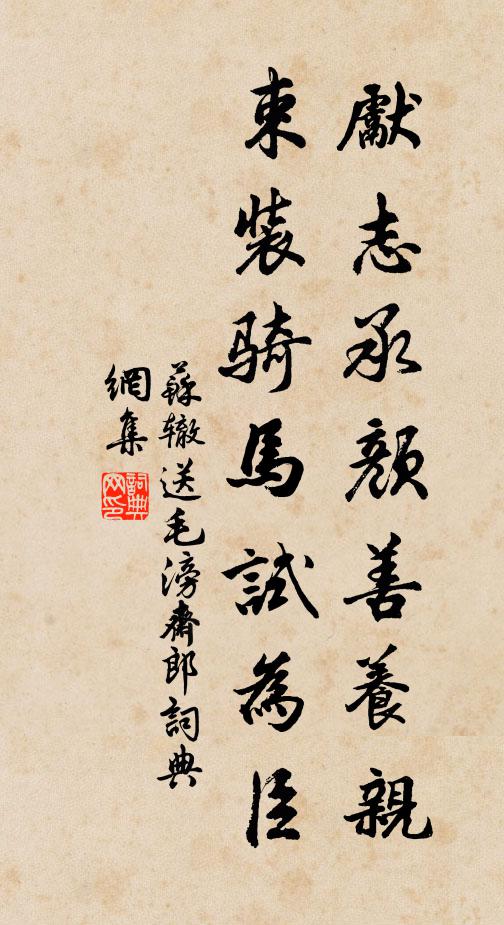 獻志承顏善養親
束裝騎馬試為臣
蘇辙送毛滂齋郎詞典
網集
詞典
网印